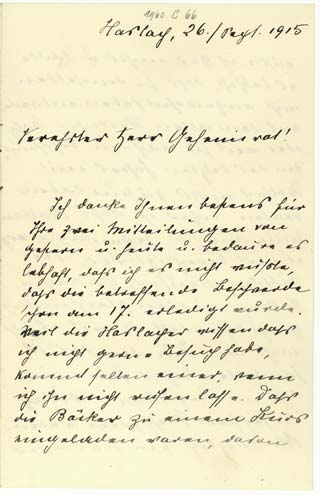 1960 C 66
Haslach, 26./Sept. 1915
Verehrter Herr Geheimrat!
Ich danke Ihnen bestens für
Ihre zwei Mitteilungen von
gestern u. heute u. bedaure es
lebhaft, daß ich es nicht wußte,
daß die betreffende Beschwerde
schon am 17. erledigt wurde.
Weil die Haslacher wissen daß
ich nicht gerne Besuch habe,
kommt selten einer, wenn
ich ihn nicht rufen lasse. Daß
die Bäcker zu einem Kurs
eingeladen waren, davon